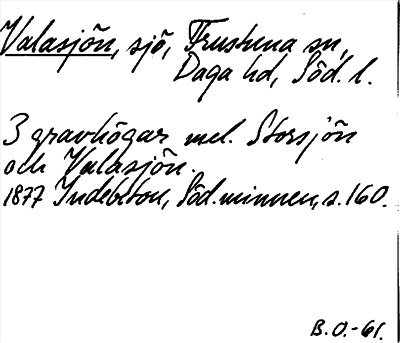 Valasjön, sjö, Frustuna sn,
Daga hd, Söd. l.
3 gravhögar mel. Storsjön
och Valasjön.
1877 Indebetou, Söd. minnen, s. 160.
B.O.-61.